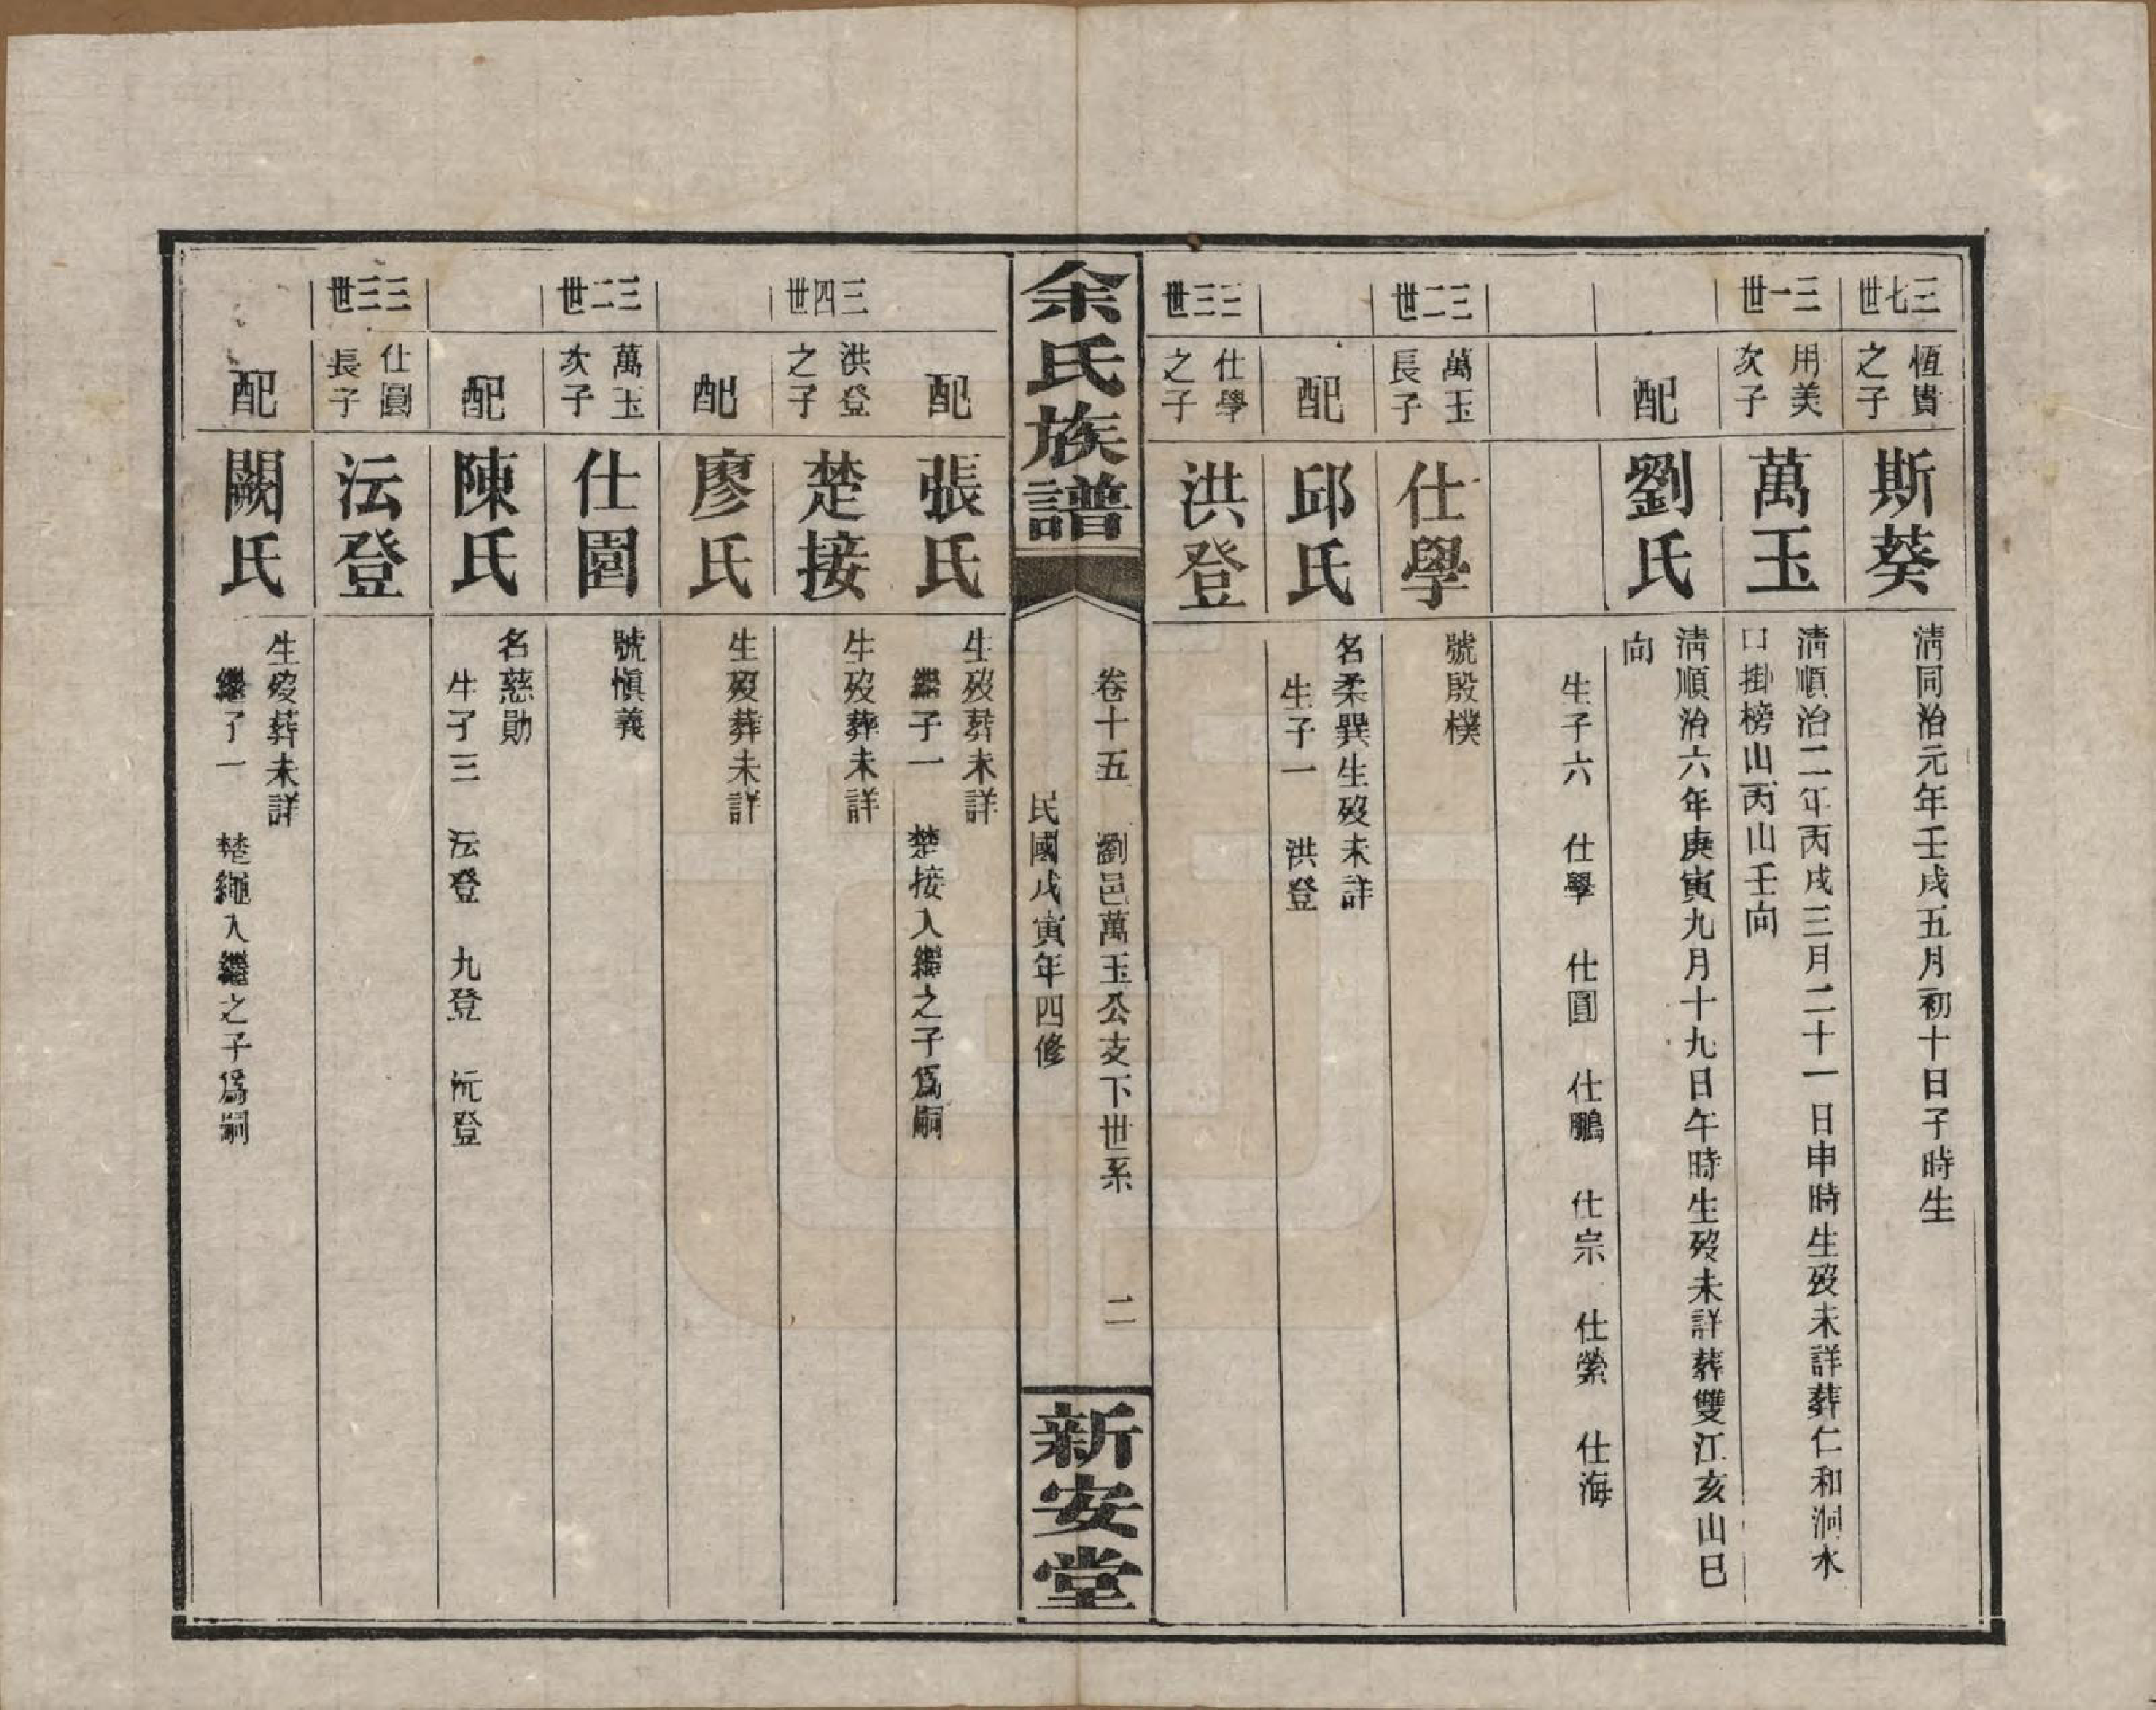 三七世
恆貴之子
斯葵
淸同治元年壬戌五月初十日子時生
三一世
用美次子
萬玉
淸順治二年丙戌三月二十一日申時生歿未詳葬仁和洞水
口掛榜山丙山壬向
配
劉氏
淸順治六年庚寅九月十九日午時生歿未詳葬雙江亥山巳
向
生子六 仕學 仕圓 仕鵬 仕宗 仕縈 仕海
三二世
萬玉長子
仕學
號殷樸
配
邱氏
名柔巽生歿未詳
生子一 洪登
三三世
仕學之子
洪登
余氏族譜
卷十五 瀏邑萬玉公支下世系 二
民國戊寅年四修
新安堂
配
張氏
生歿葬未詳
繼子一 楚接入繼之子爲嗣
三四世
洪登之子
楚接
生歿葬未詳
配
廖氏
生歿葬未詳
三二世
萬玉次子
仕圓
號愼義
配
陳氏
名慈勛
生子三 沄登 九登 沅登
三三世
仕圓長子
沄登
配
闕氏
生歿葬未詳
繼子一 楚繩入繼之子爲嗣